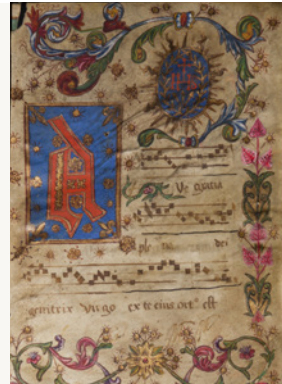 A
Ve gratia
ple na dei
genitrix Virgo ex te eius ort' est